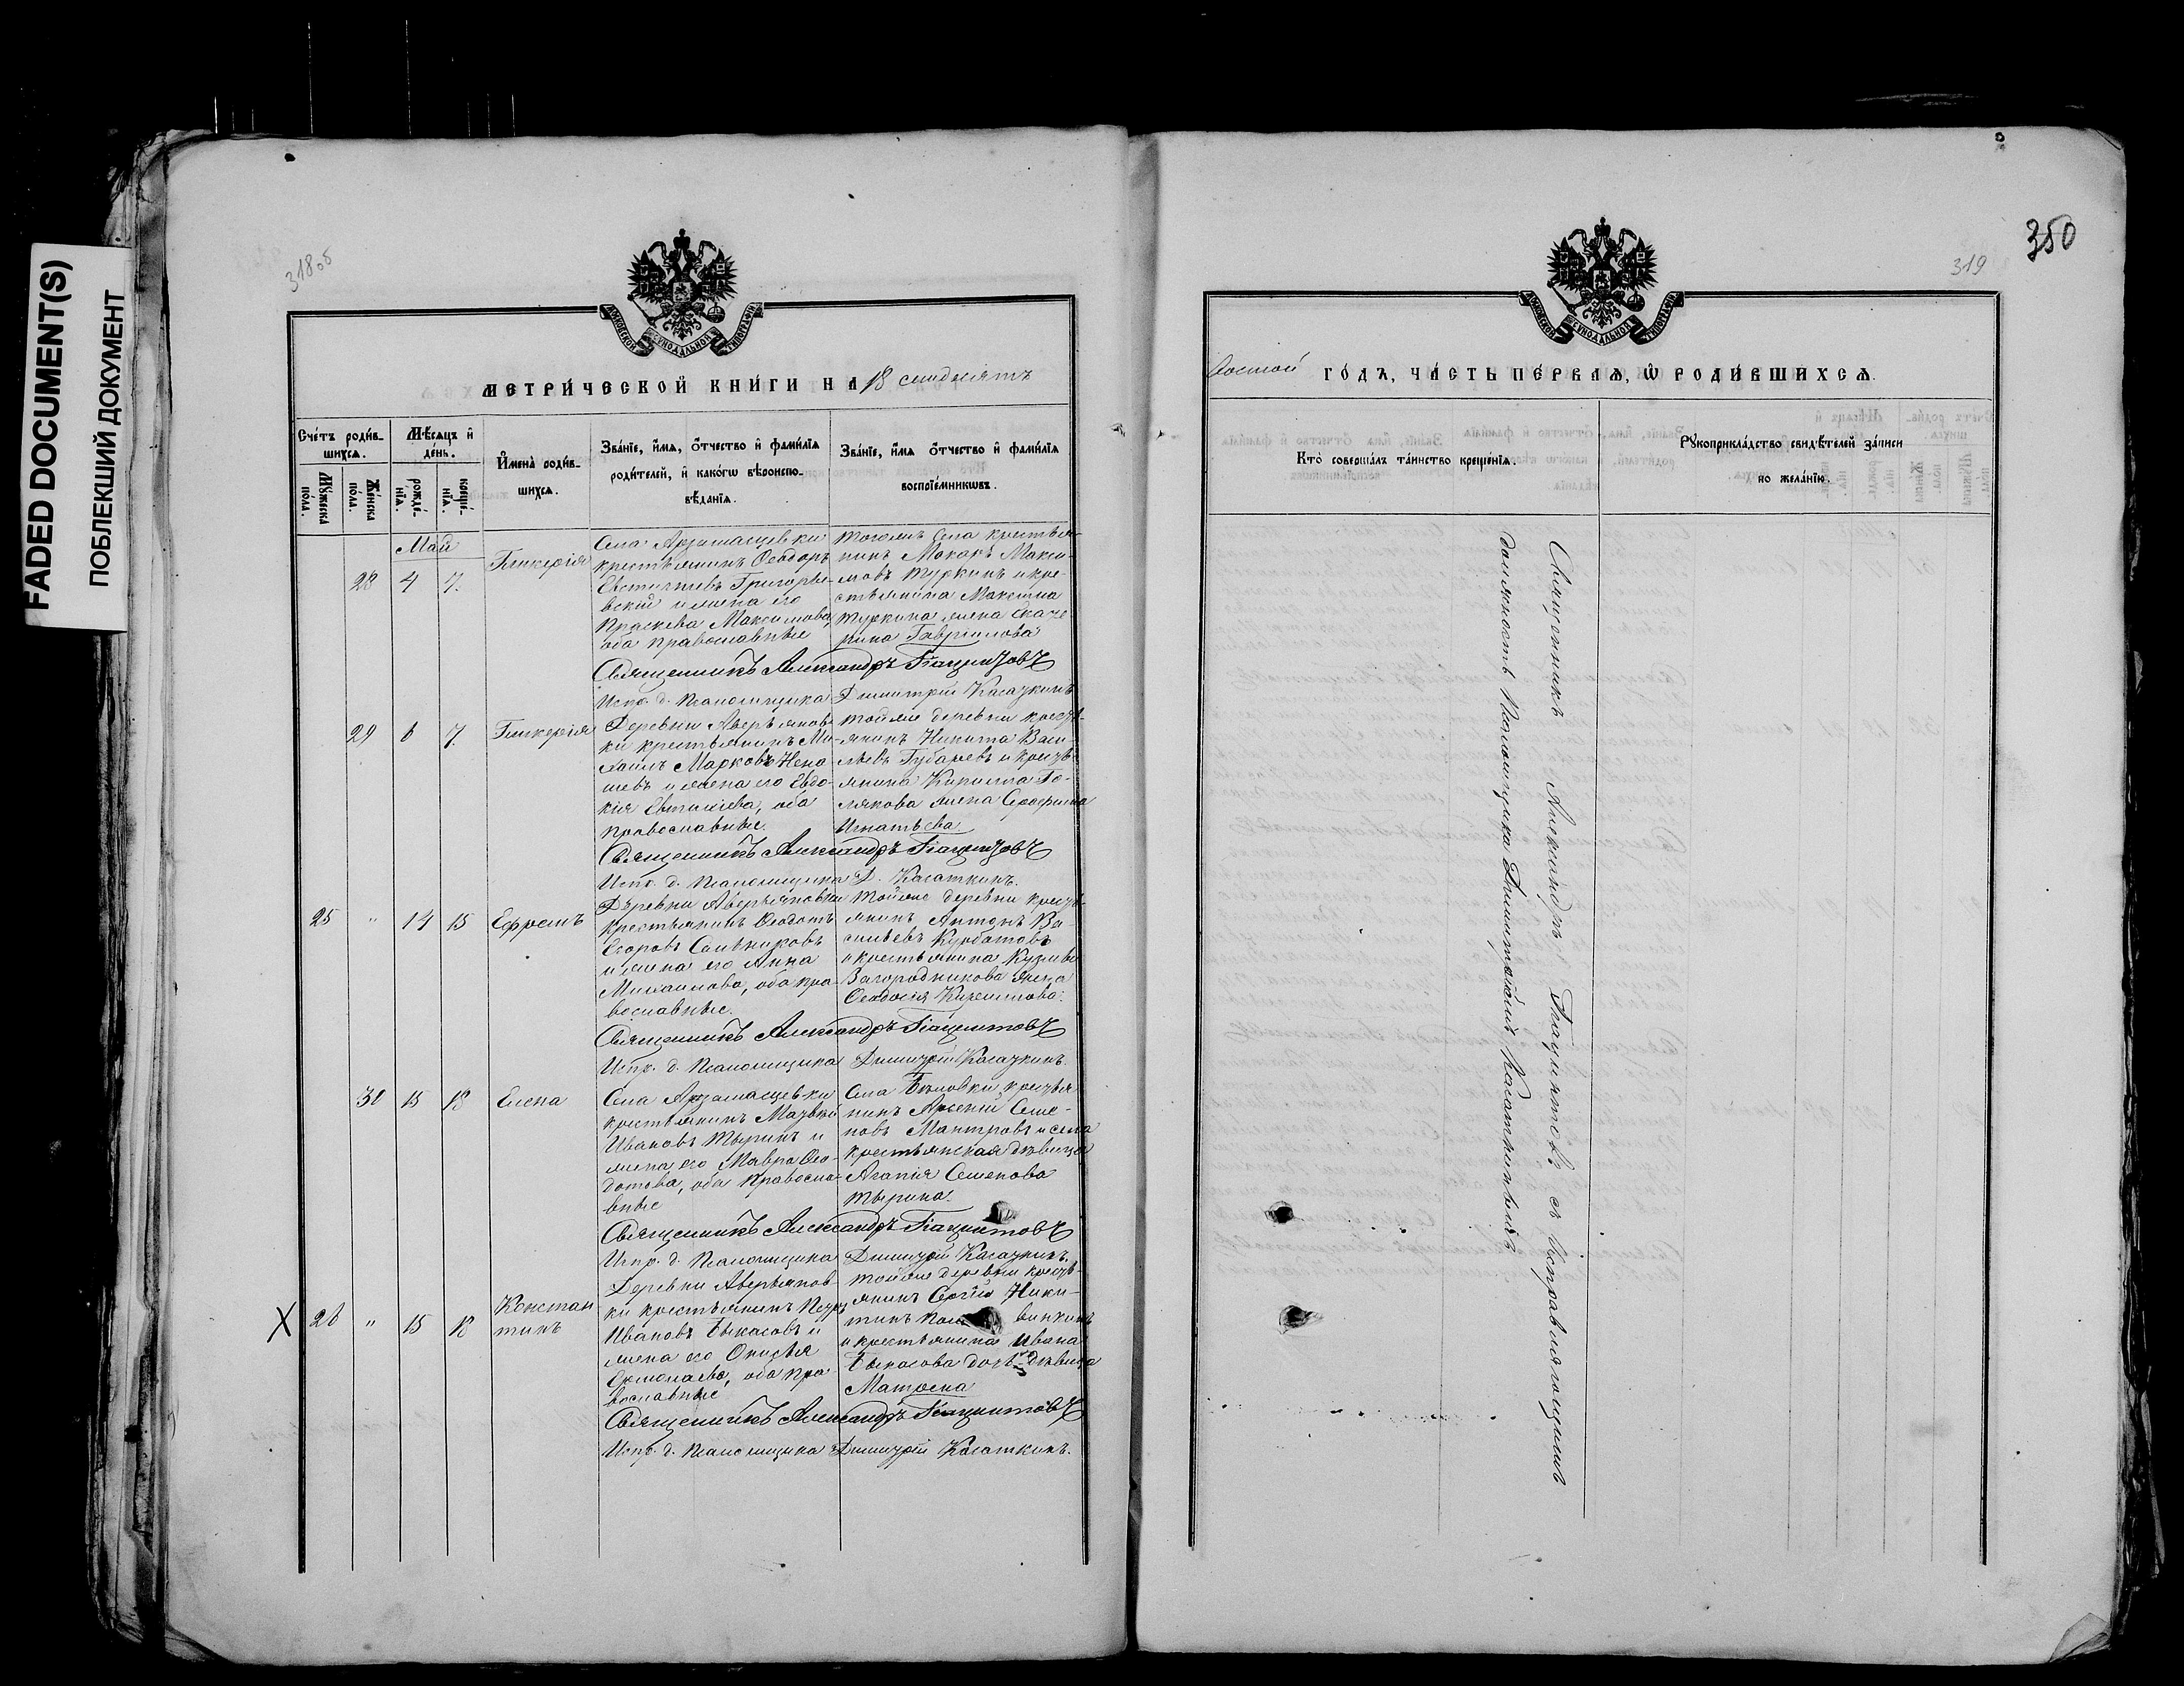 FADED DOCUMENT(S)
ПОБЛЕКШИЙ ДОКУМЕНТ
318об
МЕТРИЧЕСКОЙ КНИГИ НА 18 семдесятъ
Счетъ родив-
шихся.
Мужеска
пола.
Женска
пола.
Мѣсяцъ и
день.
рожде-
нія.
креще-
нія.
Имена родив-
шихся.
Званіе, имя, отчество и фамилія
родителей, и какого вѣроиспо-
вѣданія.
Званіе, имя отчество и фамилія
воспріемниковъ.
Май
28 4 7.
Гликерія
Села Арзамасцевки
крестьянинъ Ѳеодоръ
Евстигнѣевъ Григорье-
вскій и жена его
Праскева Максимова,
оба православные
Тогоже села крестья-
нинъ Макаръ Макси-
мовъ Туркинъ и кре-
стьянина Максима
Туркина жена Екате
рина Гавріилова
Священникъ Александръ Гіацинтовъ
Испр. д. Псаломщика Димитрій Касаткинъ
29 6 7.
Гликерія
Деревни Аверьянов-
ки крестьянинъ Ми-
хаилъ Марковъ
и жена его Евдо-
кія Евтихіева, оба
православные.
Тойже деревни кресть-
янинъ Никита Васи-
льевъ Губаревъ и кресть-
янина Кирилла По-
лякова жена Серафима
Игнатьева
Священникъ Александръ Гіацинтовъ
Испр. д. Псаломщика Д. Касаткинъ.
25 " 14 15
Ефремъ
Деревни Аверьяновки
крестьянинъ Ѳеодотъ
Егоровъ Сальниковъ
и жена его Анна
Михаилова, оба пра-
вославные.
Тойже деревни кресть-
янинъ Антонъ Ва
сильевъ Курбатовъ
и крестьянина Кузьмы
Загородникова жена
Ѳеодосія Кириллова.
Священникъ Александръ Гіацинтовъ
Испр. д. Псаломщика Димитрій Касаткинъ.
30 15 18
Елена
Села Арзамасцевки
крестьянинъ Матвѣй
Ивановъ Тыринъ и
жена его Мавра Ѳео-
дотова, оба правосла-
вные
Села Бѣловки крестья-
нинъ Арсеній Семе-
новъ Мантровъ и села
крестьянская дѣвица
Агапія Семенова
Тырина.
Священникъ Александръ Гіацинтовъ
Испр. д. Псаломщика Димитрій Касаткинъ.
X 26 " 15 18
Констан
тинъ
Деревни Аверьянов-
ки крестьянинъ Петръ
Ивановъ Быкасовъ и
жена его Онисья
Ермолаева, оба пра
вославные
Тойже деревни кресть-
янинъ Сергій Ники-
тинъ
и крестьянина Ивана
Быкасова дочь дѣвица
Матрена
Священникъ Александръ Гіацинтовъ
Испр. д. Псаломщика Димитрій Касаткинъ.
350
319
восмой ГОДЪ, ЧАСТЬ ПЕРВАЯ, Ѿ РОДИВШИХСЯ.
Кто совершалъ таинство крещенія.
Рукоприкладство свидѣтелей записи
по желанію.
Священникъ Александръ Гіацинтовъ съ исправляющимъ
должность Псаломщика Димитріемъ Касаткинымъ